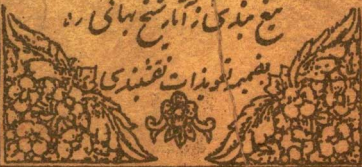 منبع مبدی ز آثار شیخ بهائی ره
بضمیمه تعویذات نقشبندی